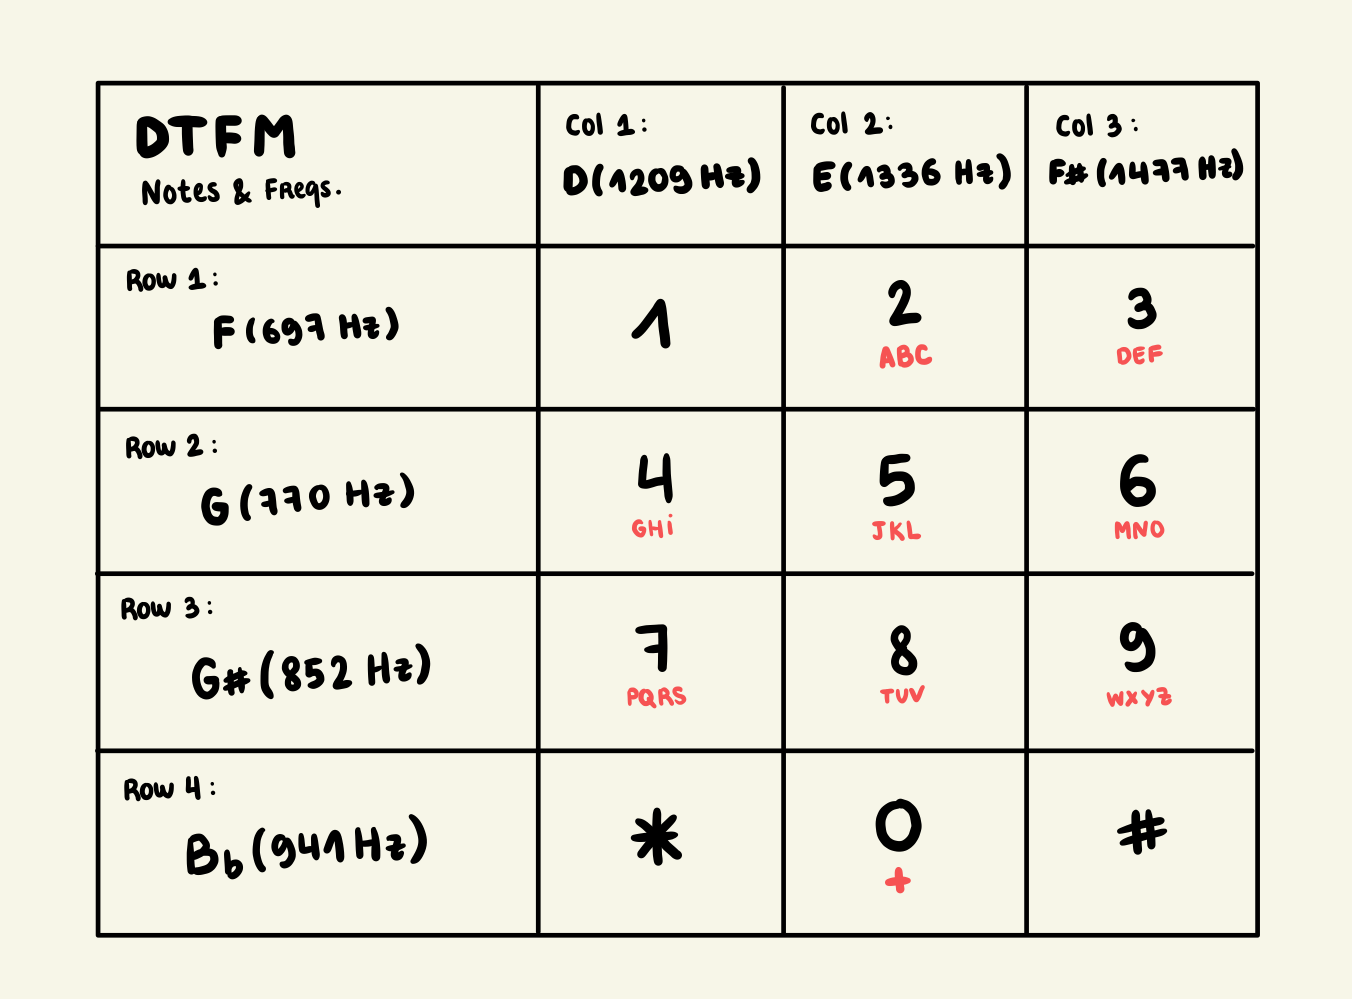 DTFM
Notes & Freqs.
Col 1:
D(1209 Hz)
Col 2:
E(1336 Hz)
Col 3:
F#(1477 Hz)
Row 1:
F(697 Hz)
1
2
ABC
3
DEF
Row 2:
G(770 Hz)
4
GHi
5
JKL
6
MNO
Row 3:
G#(852 Hz)
7
PQRS
8
TUV
9
WXYZ
Row 4:
Bb(941 Hz)
*
0
+
#